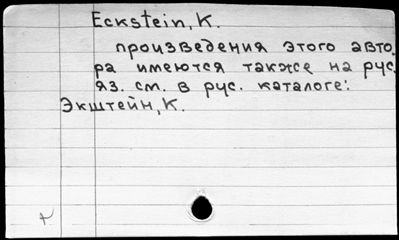 Eckstein, K.
произведения этого авто.
ра имеются также на рус.
яз. см. в рус. каталоге:
Экштейн, К.